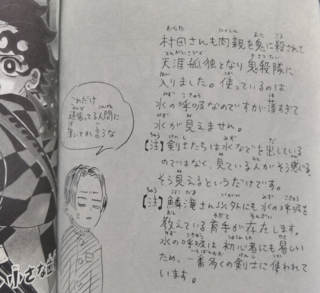 村田さんも肉親を鬼に殺されて
天涯孤独となり鬼殺隊に
入りました。使っているのは
水の呼吸なのですが薄すぎて
水が見えません。
【注】剣士たちは水などを出している
のではなく、見ている人が
そう見えるというだけです。
【注】鱗滝さん以外にも水の呼吸を
教えている育手が存在します。
水の呼吸は初心者にも易しい
ため、一番多くの剣士に使われて
います。
これだけ
頑張ってる人間に
薄いとか言うな
小さな